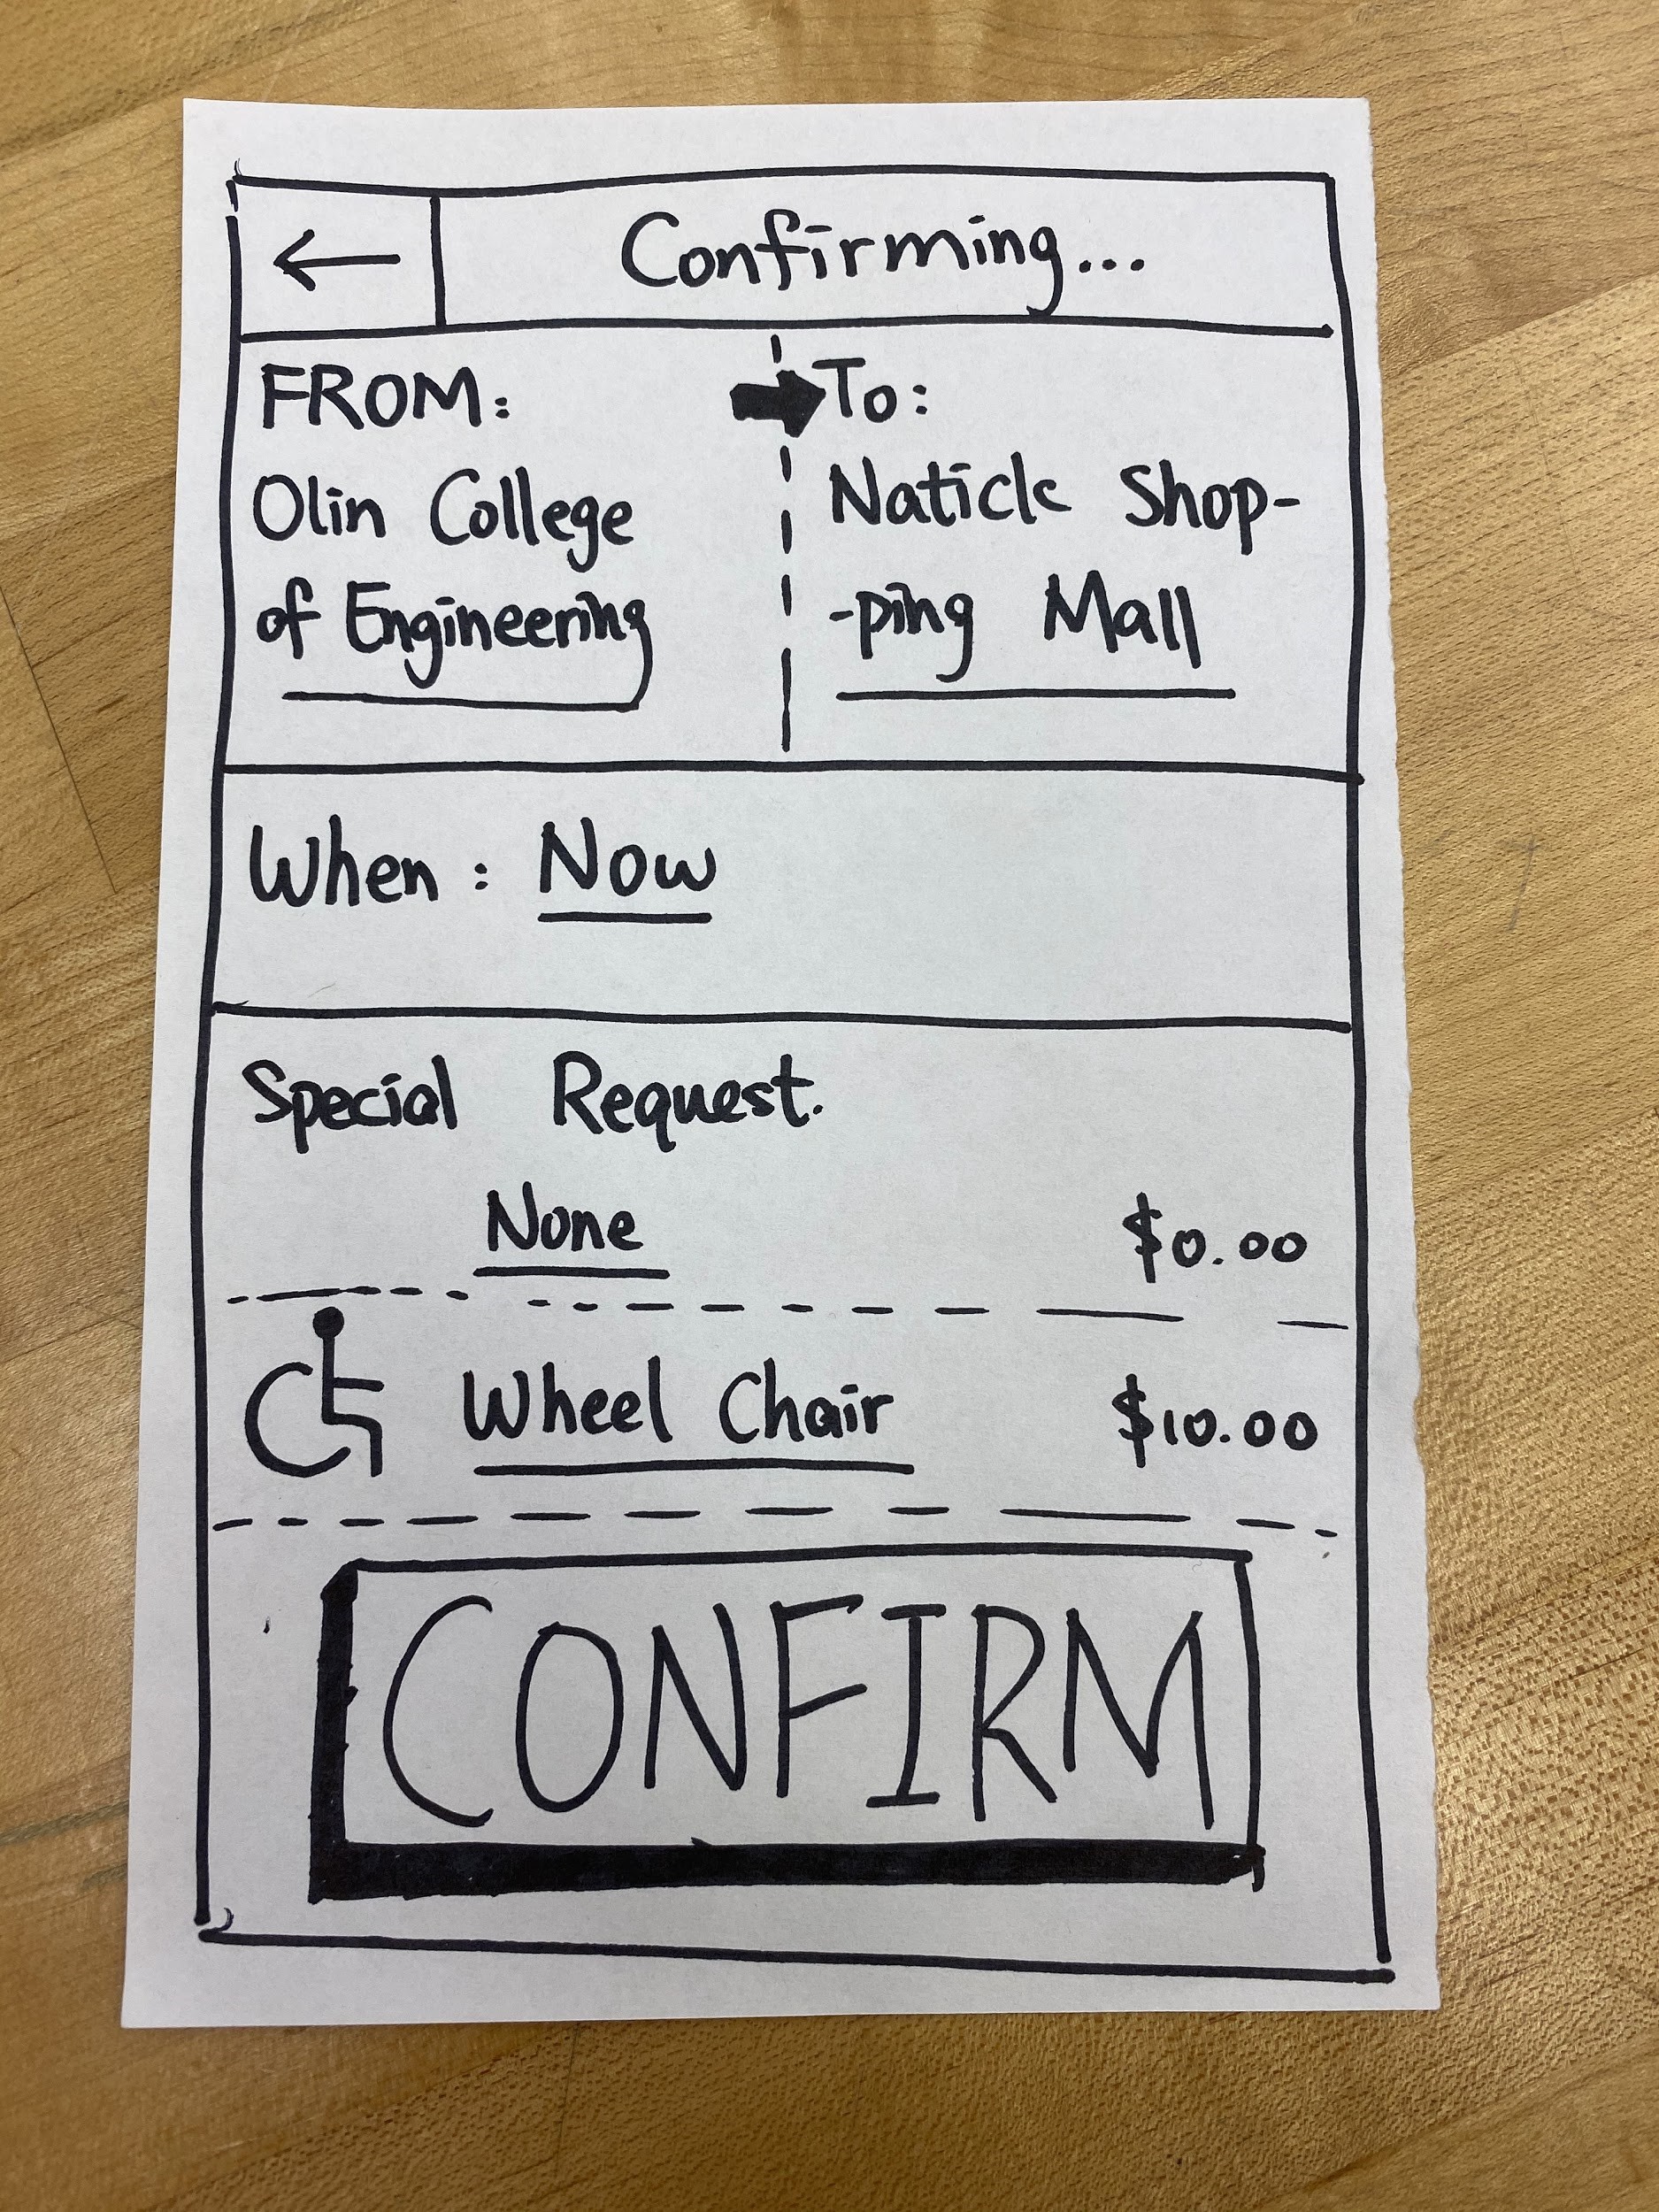 Confirming...
FROM:
Olin College
of Engineering
To:
Natick Shop-
-ping Mall
When : Now
Special Request.
None $0.00
Wheel Chair $10.00
CONFIRM